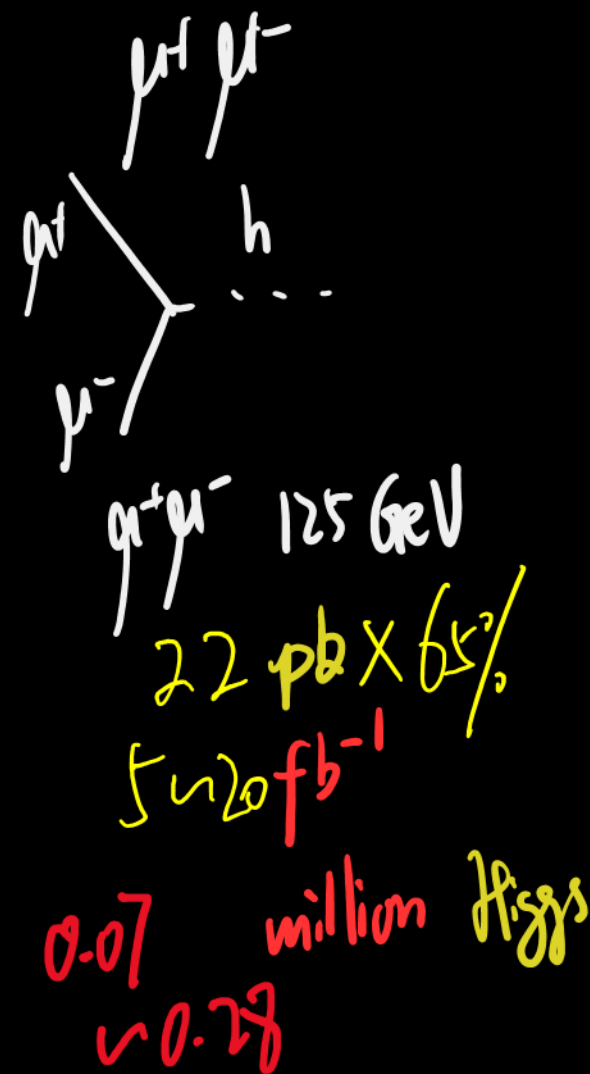 μ+ μ-
μ+
h
μ-
μ+μ- 125 GeV
22 pb × 65%
5~20 fb⁻¹
0.07 million Higgs
~0.28